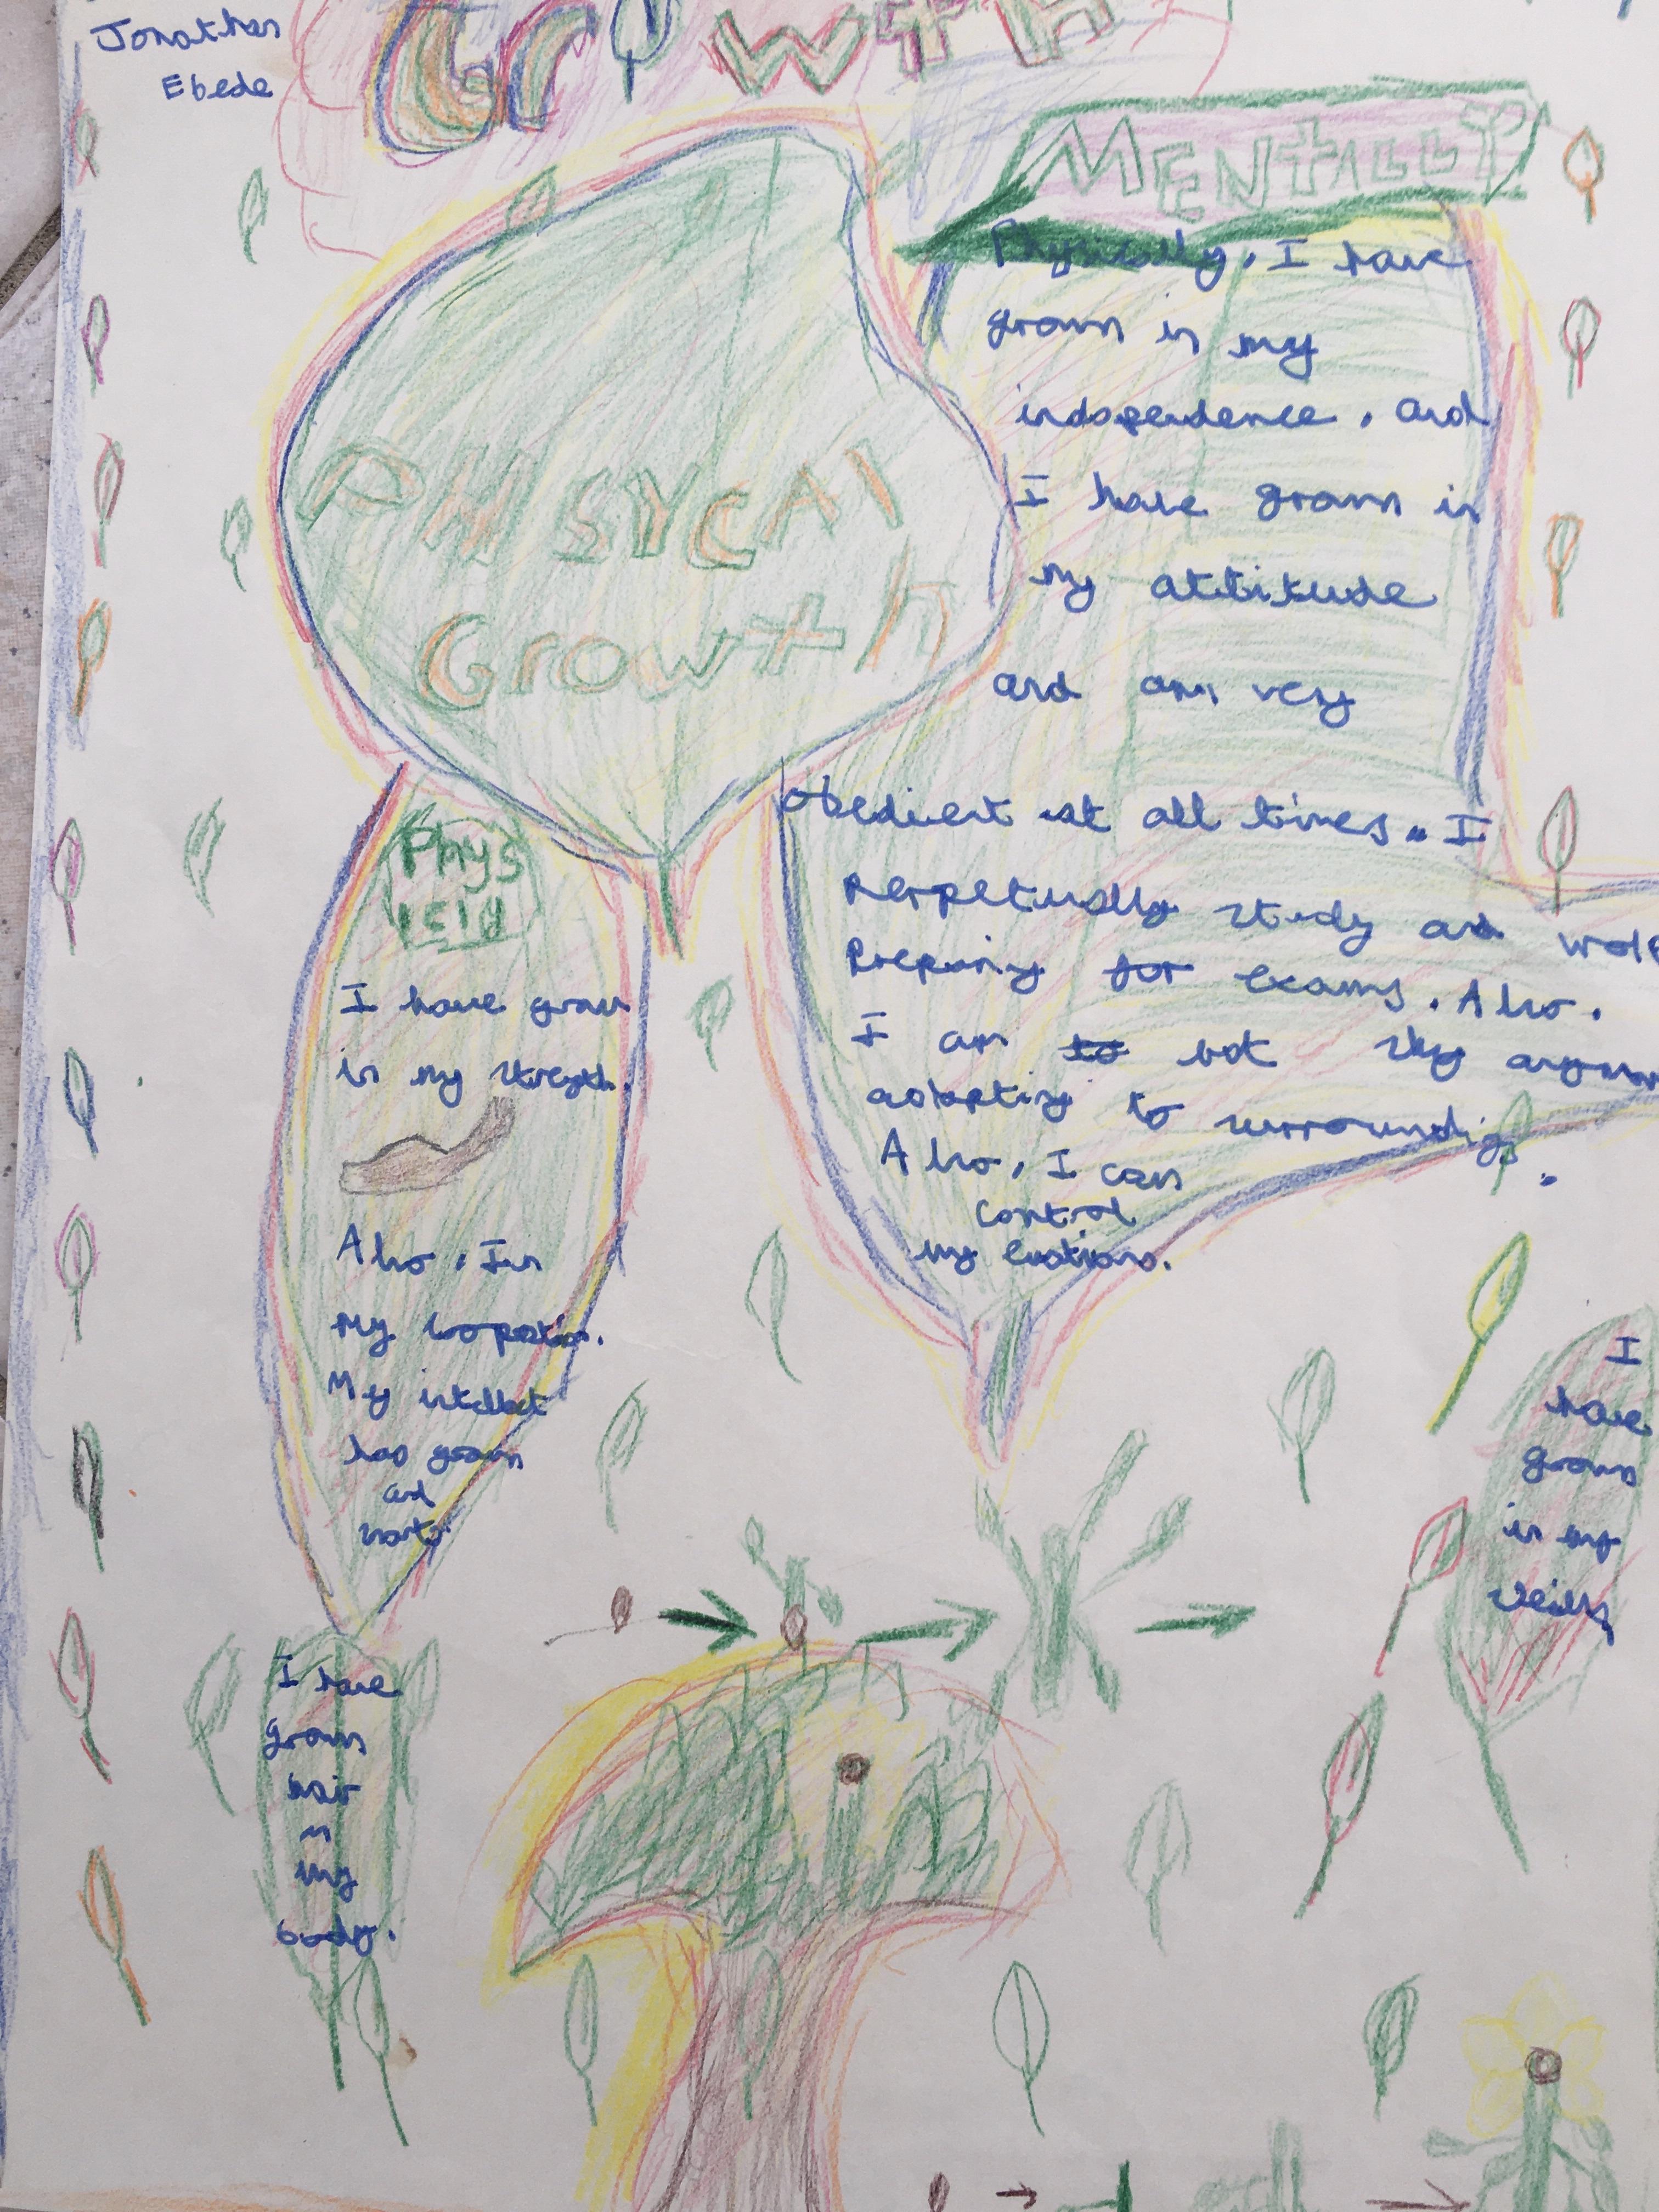 Jonathan
Ebede
Growth
MENTALLY
Physically, I have
grown in my
independence. and
I have grown in
my attitude
and am very
obedient at all times. I
Perpetually study and
Preparing for exams. Also.
I am not
adapting to surroundings.
Also, I can
control
my emotions.
PHISYCAl
Growth
Phys
I have grown
in my strength.
Also. In
My
My intellect
has grown
and
I have
grown
hair
in
my
body.
I
have
grown
in my